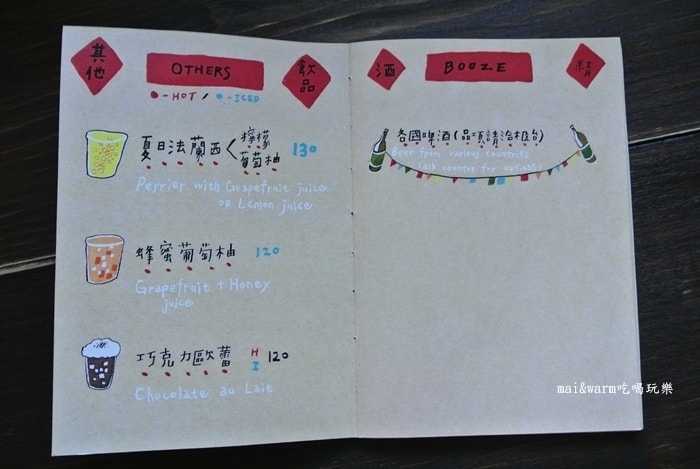 其他
OTHERS
飲品
-HOT / -ICED
夏日法蘭西<檸檬
葡萄柚
130
Perrier with Grapefruit juice
or Lemon juice
蜂蜜葡萄柚 120
Grapefruit + Honey
juice
巧克力歐蕾 H I 120
Chocolate au Lait
酒
BOOZE
精
各國啤酒(品項請洽櫃台)
Beer from various countries
(ask counter for options)
mai&warm吃喝玩樂